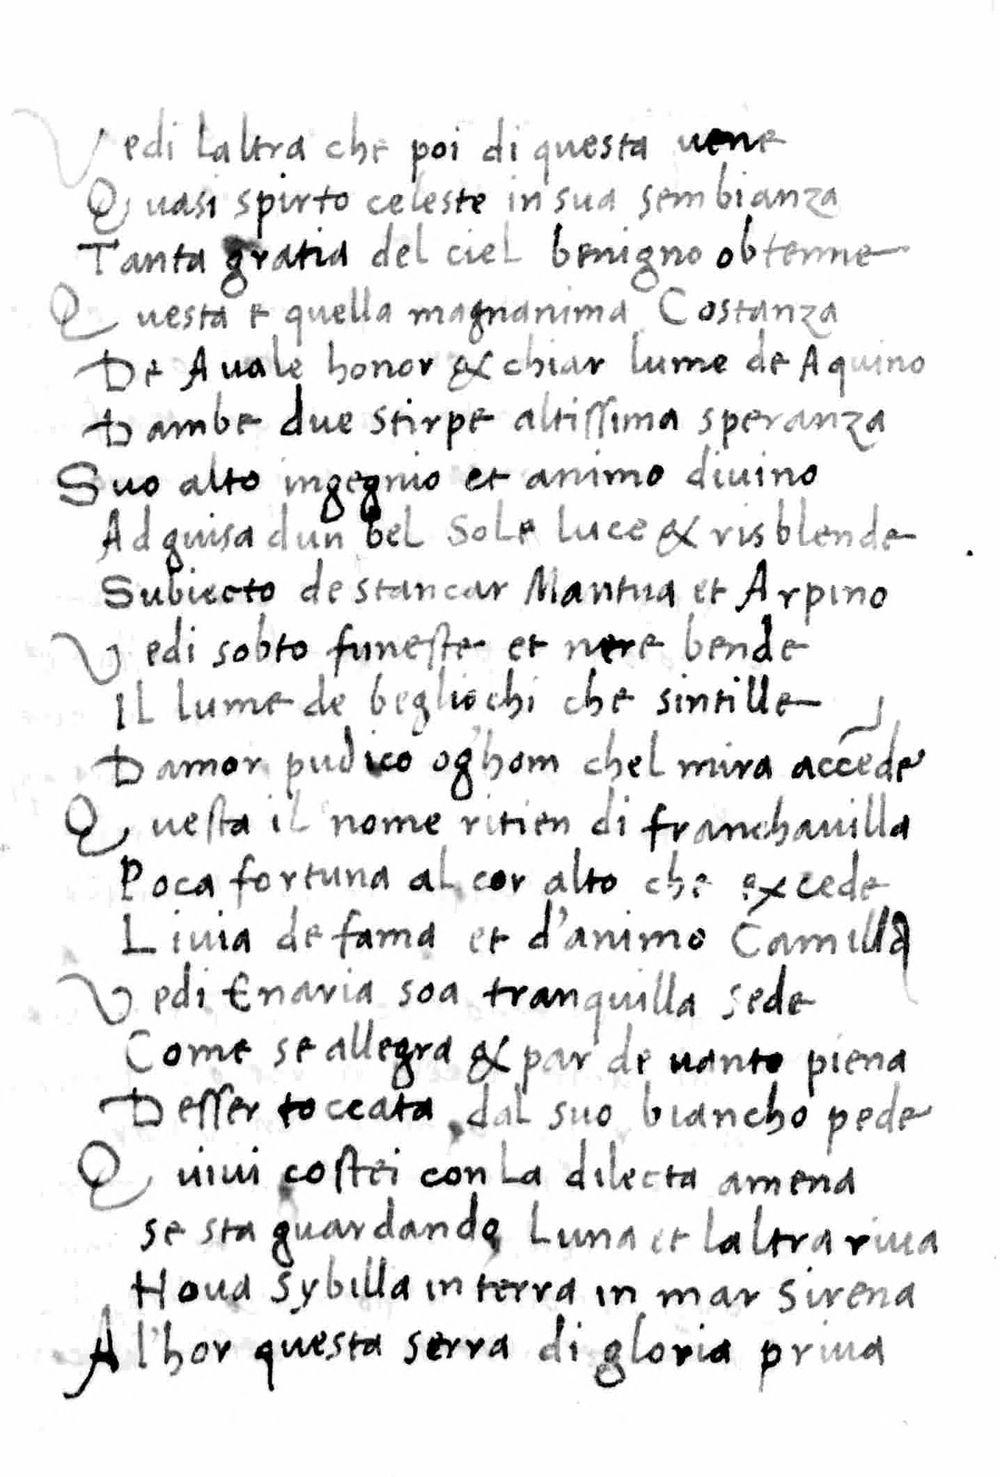 Vedi laltra che poi di questa uene
Quasi spirto celeste in sua sembianza
Tanta gratia del ciel benigno obtenne
Questa e quella magnanima Costanza
De Auale honor & chiar lume de Aquino
Dambe due stirpe altissima speranza
Suo alto ingegnio et animo diuino
Ad guisa dun bel Sole luce & risblende
Subiecto de stancar Mantua et Arpino
Vedi sobto funeste et nere bende
Il lume de begliochi che sintille
Damor pudico og'hom chel mira accede
Questa il nome ritien di franchauilla
Poca fortuna al cor alto che excede
Liuia de fama et d'animo Camilla
Vedi Enaria soa tranquilla sede
Come se allegra & par de uanto piena
Desser toccata dal suo biancho pede
Quiui costei con la dilecta amena
se sta guardando luna et laltra riua
Noua Sybilla in terra in mar Sirena
Al'hor questa serra di gloria priua